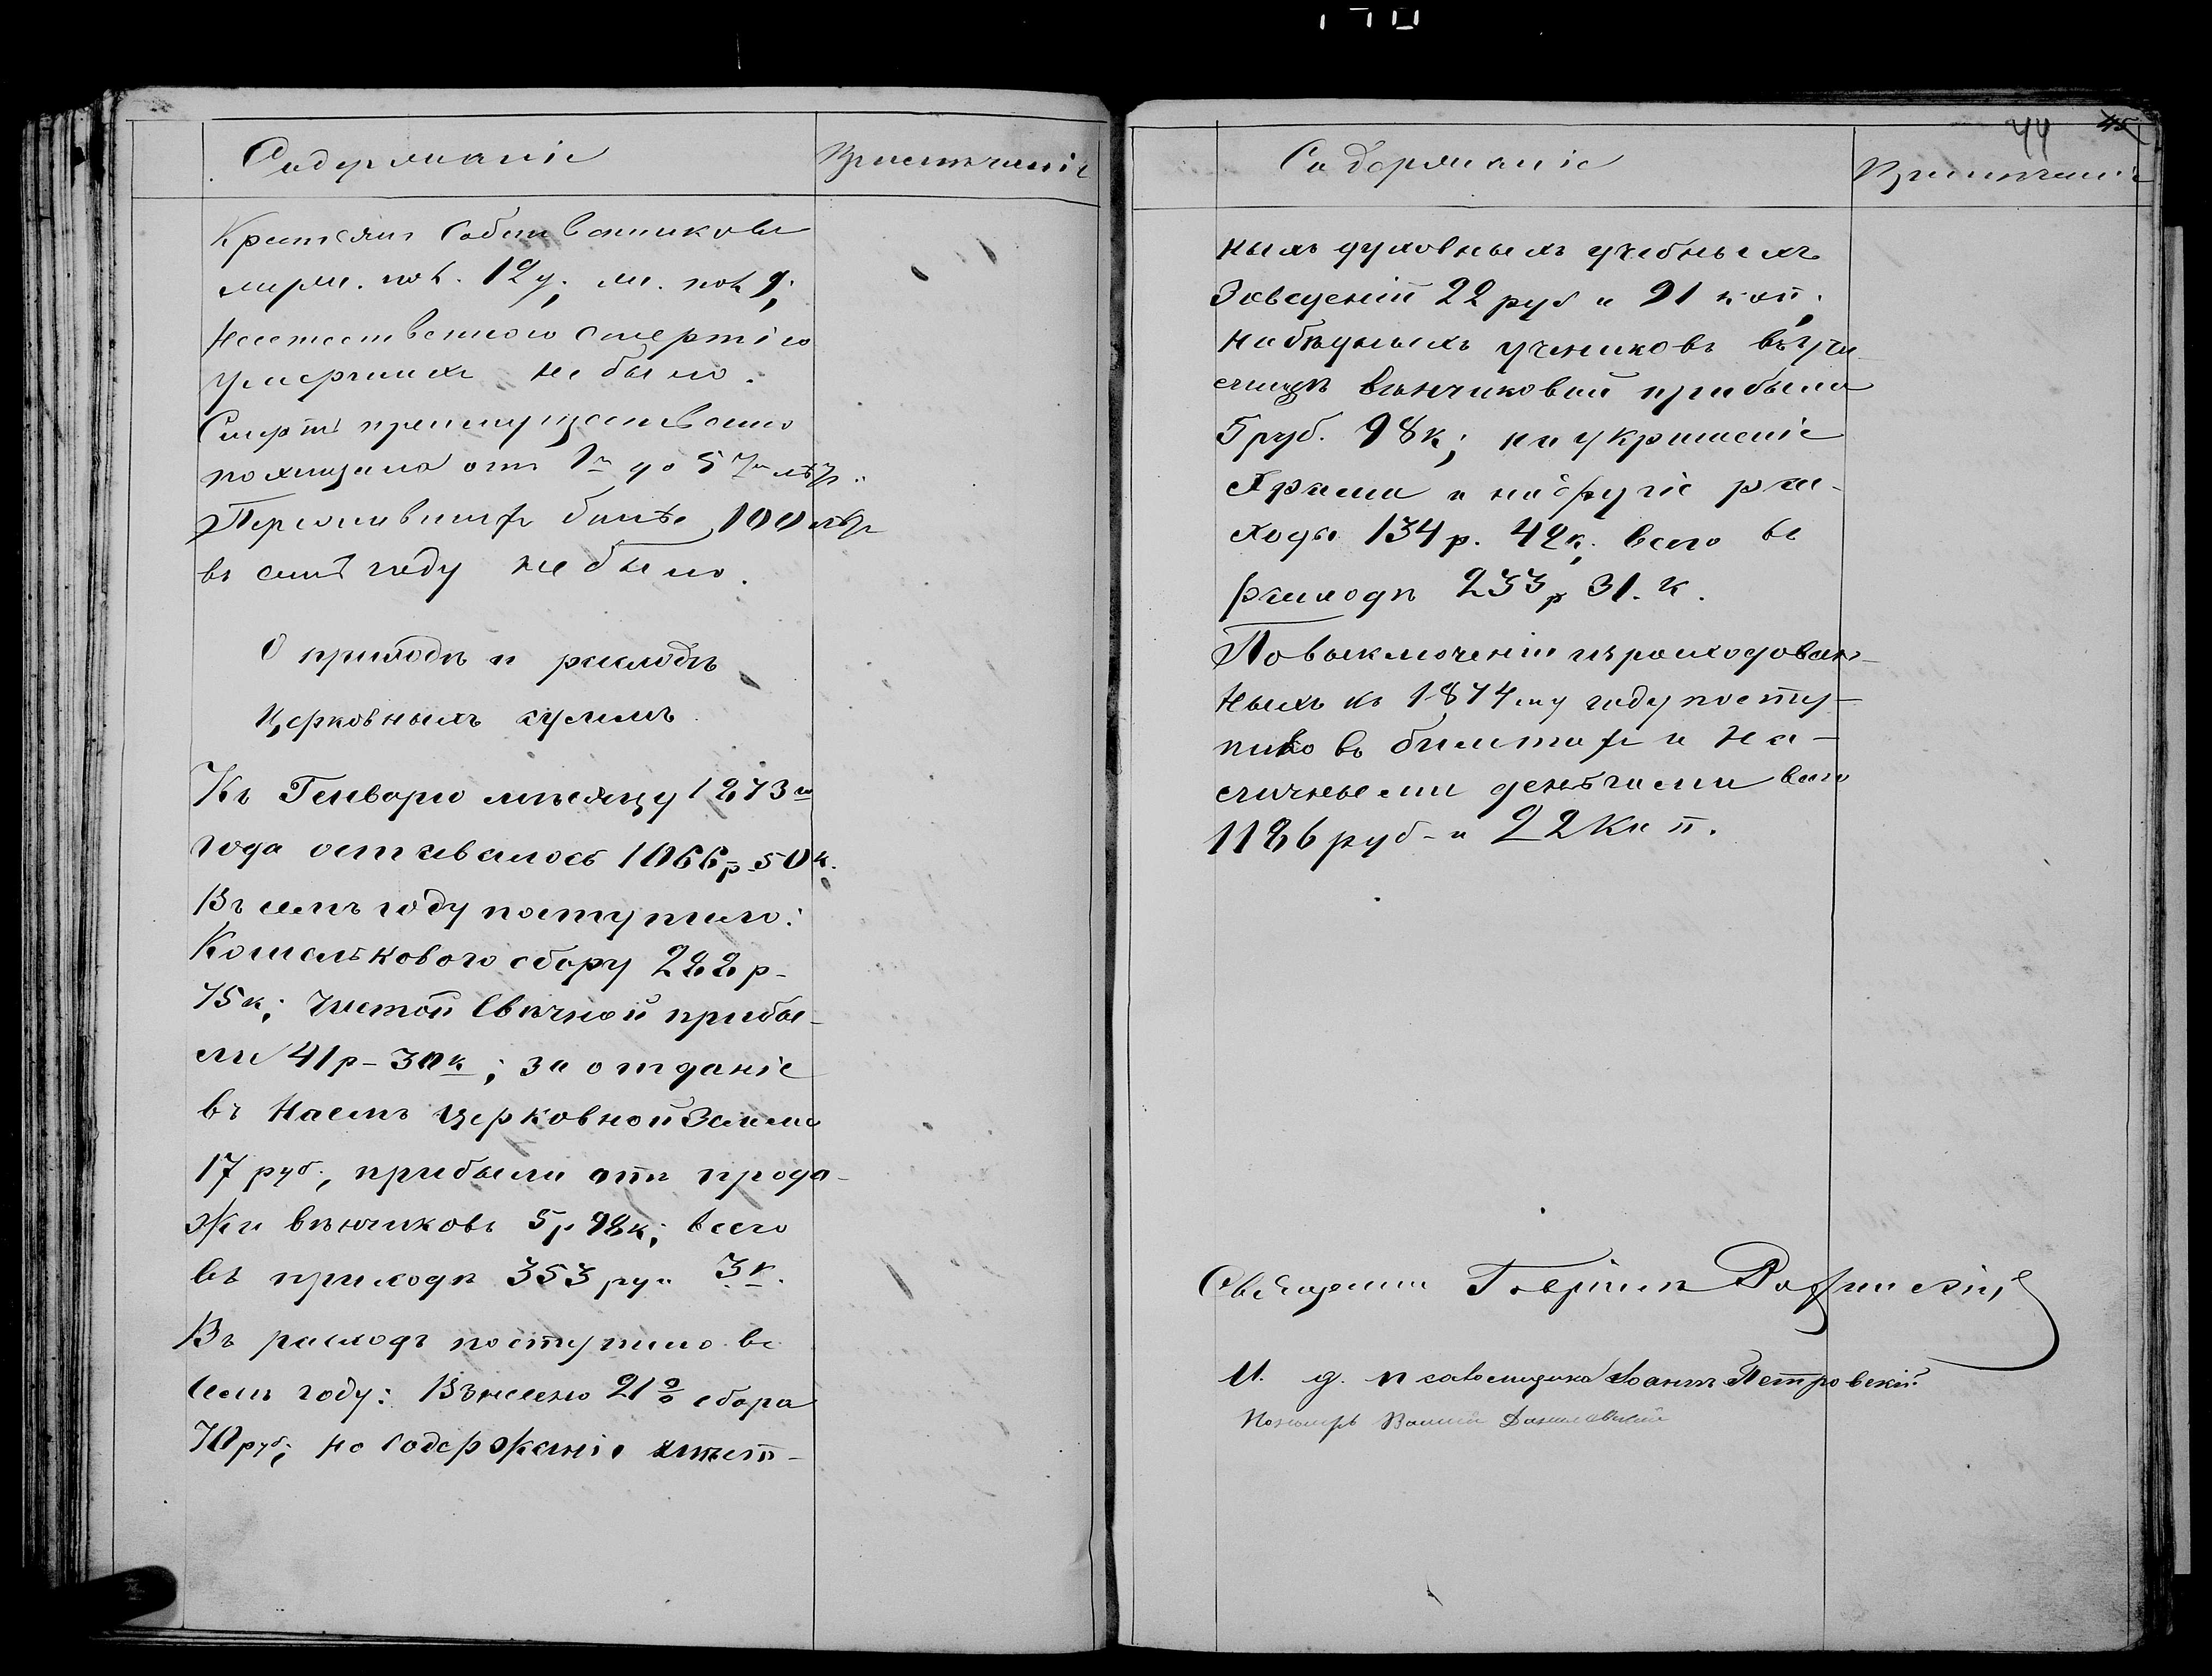 Содержаніе
Примѣчаніе
Крестьянъ собственниковъ
муж. пол. 12 д; ж. пол. 9;
Неестественною смертію
умершихъ не было.
Смерть преимущественно
похищала отъ 1го до 5ти лѣтъ.
Пережившихъ болѣе 100 лѣтъ
въ семъ году не было.
О приходѣ и расходѣ
церковныхъ суммъ
Къ Генварю мѣсяцу 1873го
года оставалось 1066 р. 50 к.
Въ семъ году поступило:
Кошельковаго сбору 288 р-
75 к; чистой свѣчной прибы-
ли 41 р - 30 к; за отданіе
въ наемъ церковной земли
17 руб., прибыли отъ прода-
жи вѣнчиковъ 5 р 98 к; всего
въ приходѣ 353 ру и 3 к.
Въ расходъ поступило въ
семъ году: Взнесено 21% сбора
70 руб; на содержаніе мѣст-
44 45
Содержаніе
Примѣчаніе
ныхъ духовныхъ учебныхъ
Заведеній 22 руб и 91 коп;
на бѣдныхъ учениковъ въ учи-
лищѣ вѣнчиковой прибыли
5 руб. 98 к; на украшеніе
Храма и на другіе рас-
ходы 134 р. 42 к. всего въ
расходѣ 233 р 31. к.
По выключеніи израсходован-
ныхъ къ 1874му году посту-
пило въ билетахъ и на-
личными деньгами всего
1186 руб - и 22 Коп.
Священникъ Гавріилъ
И. д. псаломщика Іоаннъ Петровскій
Пономарь Даниловскій